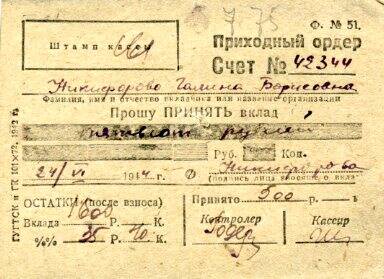 7 75
Ф. № 51.
Штамп кассы
Приходный ордер
Счет № 42344
Никифорова Галина Борисовна
Фамилия, имя и отчество вкладчика или название организации
Прошу ПРИНЯТЬ вклад
пятьсот рублей
Руб. Коп.
24/VI 1944 г. Никифорова
(подпись лица вносящего вклад)
ОСТАТКИ (после взноса) Принято 500 р.
Вклада 1600 Р. К. Контролер Кассир
%% 35 Р. 10 К.